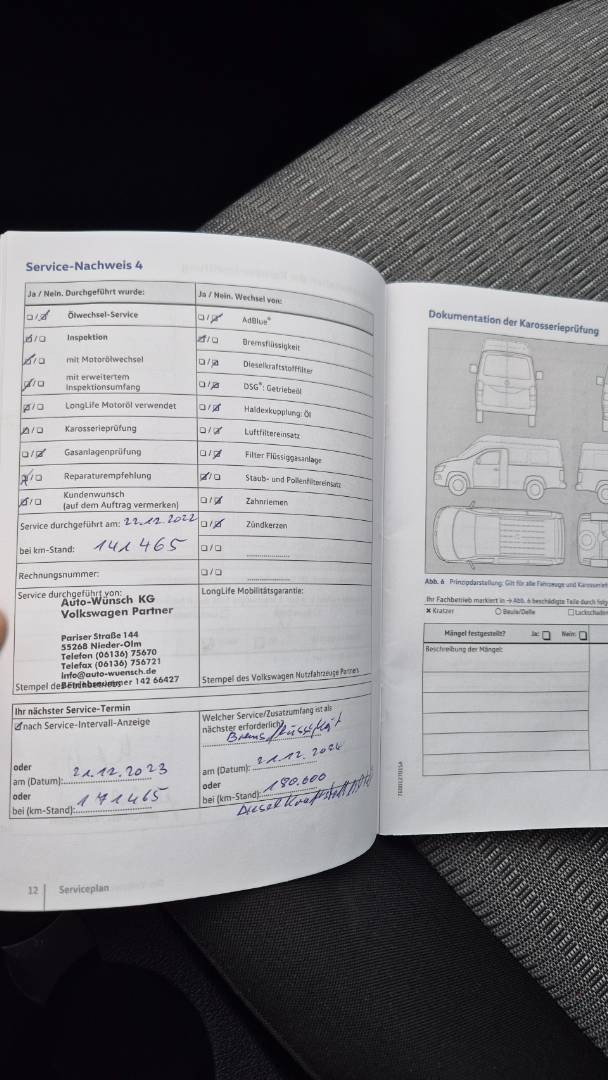 Service-Nachweis 4
Ja / Nein. Durchgeführt wurde:
Ja / Nein. Wechsel von:
Ölwechsel-Service
AdBlue®
Inspektion
Bremsflüssigkeit
mit Motorölwechsel
Dieselkraftstofffilter
mit erweitertem
Inspektionsumfang
DSG®: Getriebeöl
LongLife Motoröl verwendet
Haldexkupplung: Öl
Karosserieprüfung
Luftfiltereinsatz
Gasanlagenprüfung
Filter Flüssiggasanlage
Reparaturempfehlung
Staub- und Pollenfiltereinsatz
Kundenwunsch
(auf dem Auftrag vermerken)
Zahnriemen
Service durchgeführt am: 22.12.2022
Zündkerzen
bei km-Stand: 141465
Rechnungsnummer:
Service durchgeführt von:
LongLife Mobilitätsgarantie:
Auto-Wunsch KG
Volkswagen Partner
Pariser Straße 144
55268 Nieder-Olm
Telefon (06136) 75670
Telefax (06136) 756721
Info@auto-wuensch.de
Betriebsnummer 142 66427
Stempel des
Stempel des Volkswagen Nutzfahrzeuge Partners
Ihr nächster Service-Termin
nach Service-Intervall-Anzeige
oder
am (Datum): 21.12.2023
oder
bei (km-Stand): 171465
Welcher Service/Zusatzumfang ist als
nächster erforderlich?
Bremsflüssigkeit
am (Datum): 21.12.2024
oder
bei (km-Stand): 180.000
12 Serviceplan
Dokumentation der Karosserieprüfung
Abb. 6 Prinzipdarstellung: Gilt für alle Fahrzeuge und
Ihr Fachbetrieb markiert in → Abb. 6 beschädigte Teile durch
Kratzer Beule/Delle
Mängel festgestellt? Ja: Nein:
Beschreibung der Mängel: